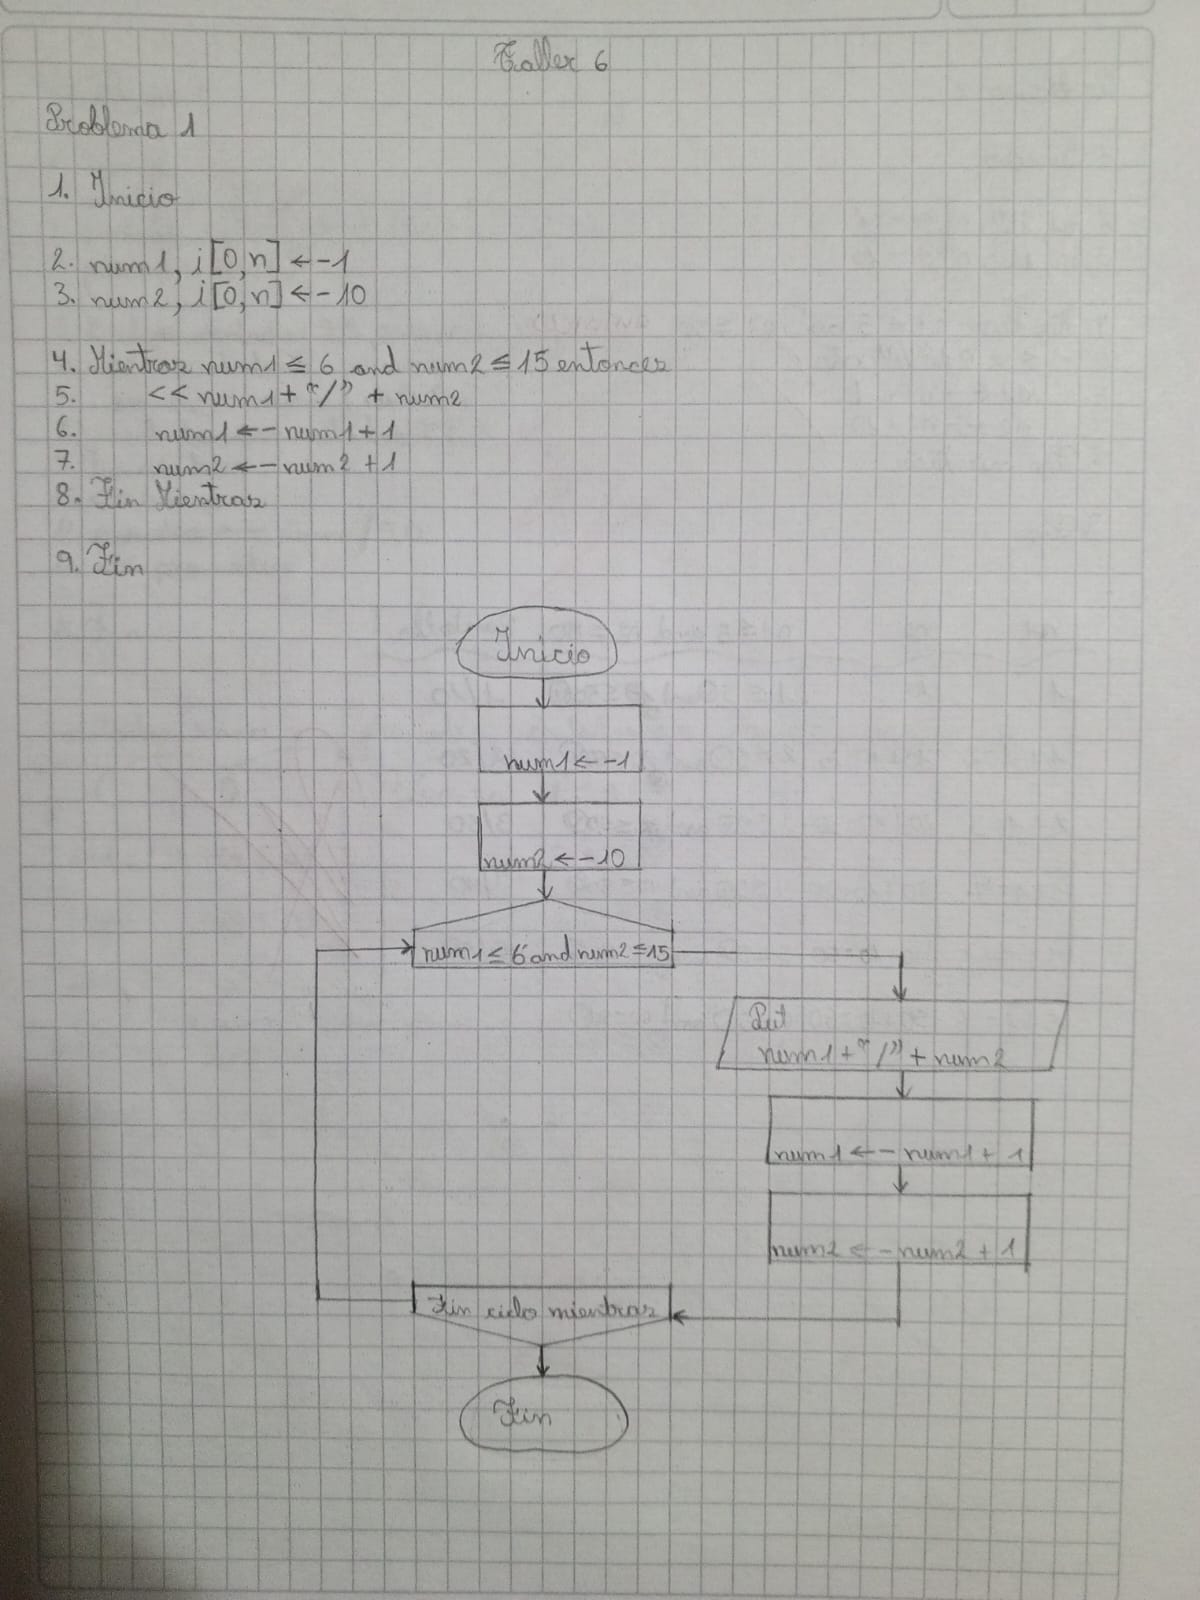 Taller 6
Problema 1
1. Inicio
2. num1, i[0,n] ←-1
3. num2, i[0,n] ←-10
4. Mientras num1 ≤ 6 and num2 ≤ 15 entonces
5. << num1 + "/" + num2
6. num1 ←- num1 + 1
7. num2 ←- num2 + 1
8. Fin Mientras
9. Fin
Inicio
num1 ←-1
num2 ←-10
num1 ≤ 6 and num2 ≤ 15
Put
num1 + "/" + num2
num1 ←- num1 + 1
num2 ←- num2 + 1
Fin ciclo mientras
Fin